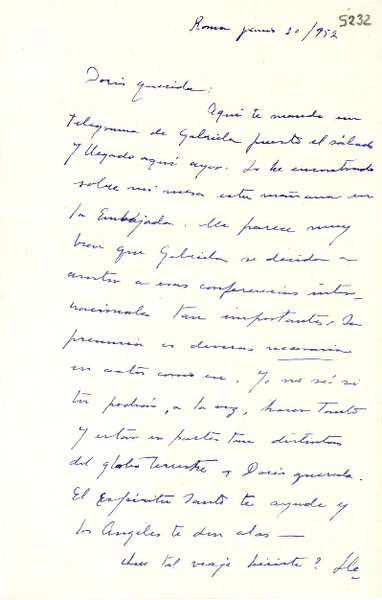 5232
Roma junio 30/952
Doris querida:
Aquí te mando un
telegrama de Gabriela puesto el sábado
y llegado aquí ayer. Lo he encontrado
sobre mi mesa esta mañana en
la Embajada. Me parece muy
bien que Gabriela se decida a
asistir a esas conferencias inter-
nacionales tan importantes. Su
presencia es deveras necesaria
en actos como ese. Yo no sé si
tú podrás, a la vez, hacer tanto
y estar en partes tan distintas
del globo terrestre, Doris querida.
El Espíritu Santo te ayude y
los Angeles te den alas —
Qué tal viaje hiciste?